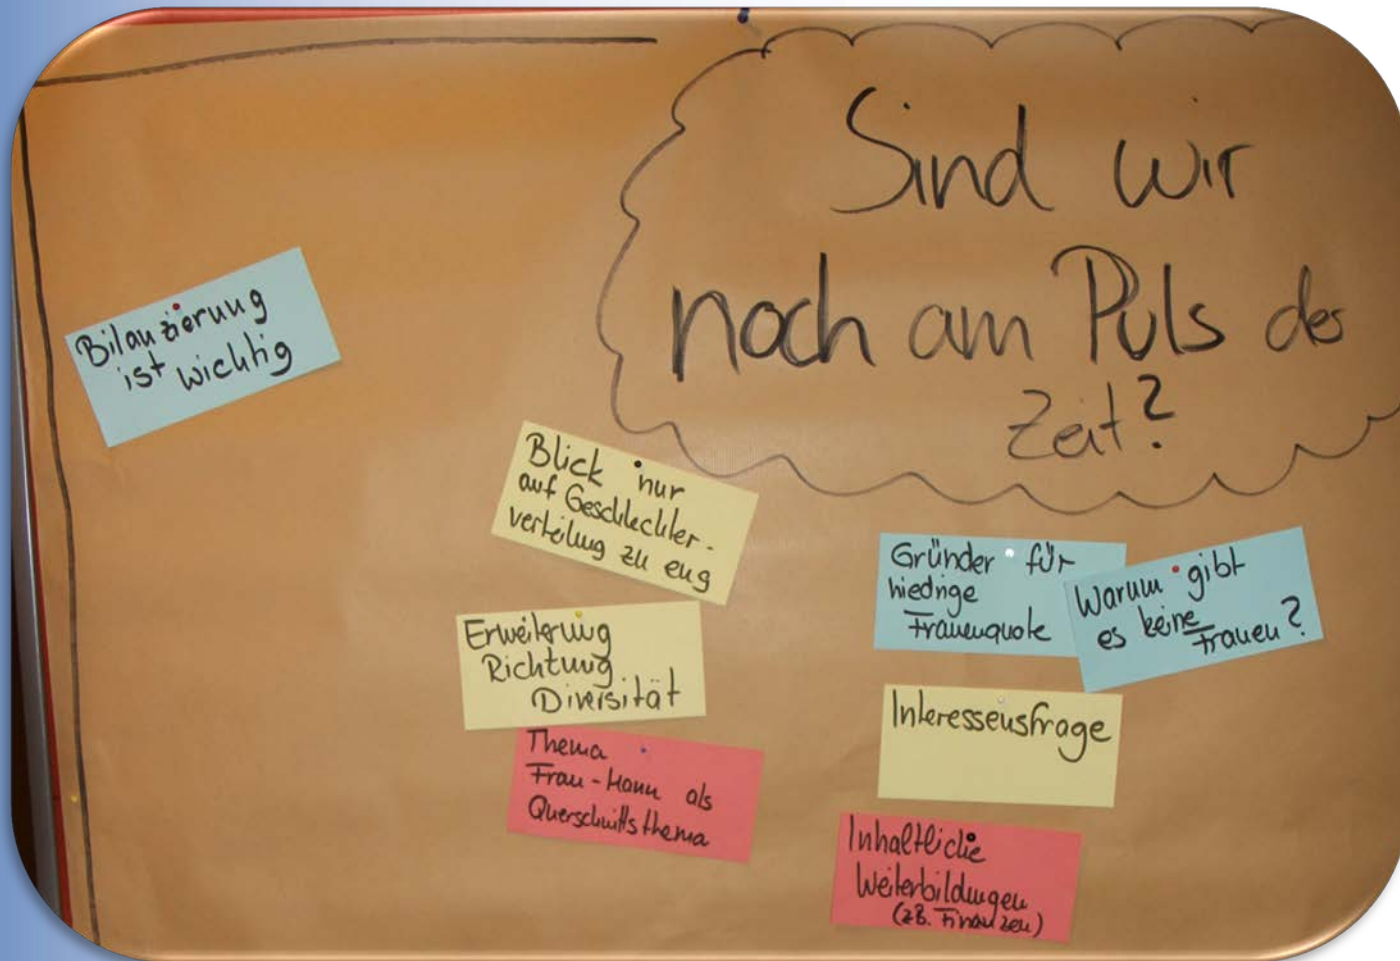 Sind wir
noch am Puls der
Zeit?
Bilanzierung
ist wichtig
Blick nur
auf Geschlechter-
verteilung zu eng
Erweiterung
Richtung
Diversität
Thema
Frau-Mann als
Querschnittsthema
Gründer für
niedrige
Frauenquote
Warum gibt
es keine
Frauen?
Interessensfrage
Inhaltliche
Weiterbildungen
(zB. Finanzen)